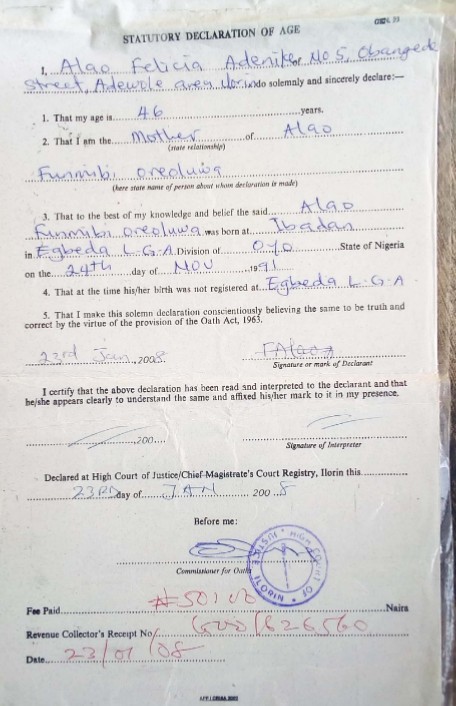 STATUTORY DECLARATION OF AGE
I, Alao Felicia Adenike of No 5, Obangede
Street, Adewole area Ilorin do solemnly and sincerely declare:—
1. That my age is 46 years.
2. That I am the Mother of Alao
(state relationship)
Funmibi Oreoluwa
(here state name of person about whom declaration is made)
3. That to the best of my knowledge and belief the said Alao
Funmibi Oreoluwa was born at Ibadan
in Egbeda L.G.A Division of Oyo State of Nigeria
on the 24th day of NOV 1991
4. That at the time his/her birth was not registered at Egbeda L.G.A
5. That I make this solemn declaration conscientiously believing the same to be truth and
correct by the virtue of the provision of the Oath Act, 1963.
23rd Jan, 2008
Signature or mark of Declarant
I certify that the above declaration has been read snd interpreted to the declarant and that
he/she appears clearly to understand the same and affixed his/her mark to it in my presence.
200
Signature of Interpreter
Declared at High Court of Justice/Chief-Magistrate's Court Registry, Ilorin this
23RD day of JAN 2008
Before me:
HIGH COURT OF JUSTICE ILORIN
Commissioner for Oath
Fee Paid ₦50:00 Naira
Revenue Collector's Receipt No
Date 23/01/08